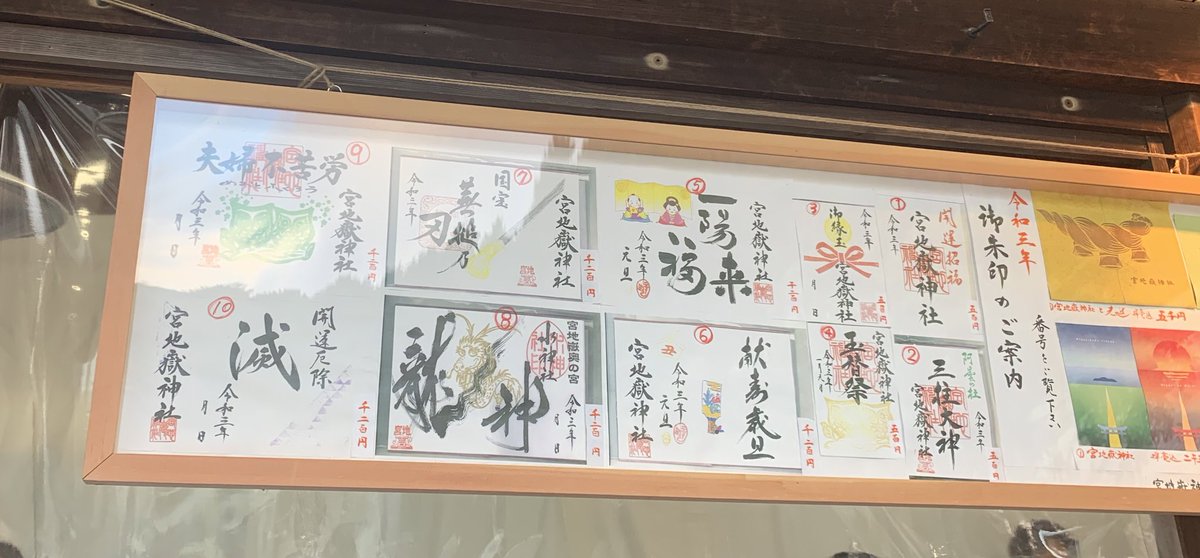 令和三年
御朱印のご案内
番号をご覧下さい
①
開運招福
宮地嶽神社
令和三年
五百円
②
阿曇の社
三柱大神
宮地嶽神社
令和三年
五百円
③
令和三年
御縁玉
宮地嶽神社
月
五百円
④
宮地嶽神社
玉替祭
五百円
⑤
宮地嶽神社
一陽来福
令和三年
元旦
千二百円
⑥
献寿歳旦
丑
令和三年
元旦
宮地嶽神社
千二百円
⑦
宮地嶽神社
国宝
令和三年
千二百円
⑧
宮地嶽奥の宮
水神社
龍神
令和三年
千二百円
⑨
夫婦不苦労
宮地嶽神社
令和三年
月
日
千二百円
⑩
開運厄除
滅
令和三年
月
日
宮地嶽神社
千二百円
宮地嶽神社
五千円
①宮地嶽神社